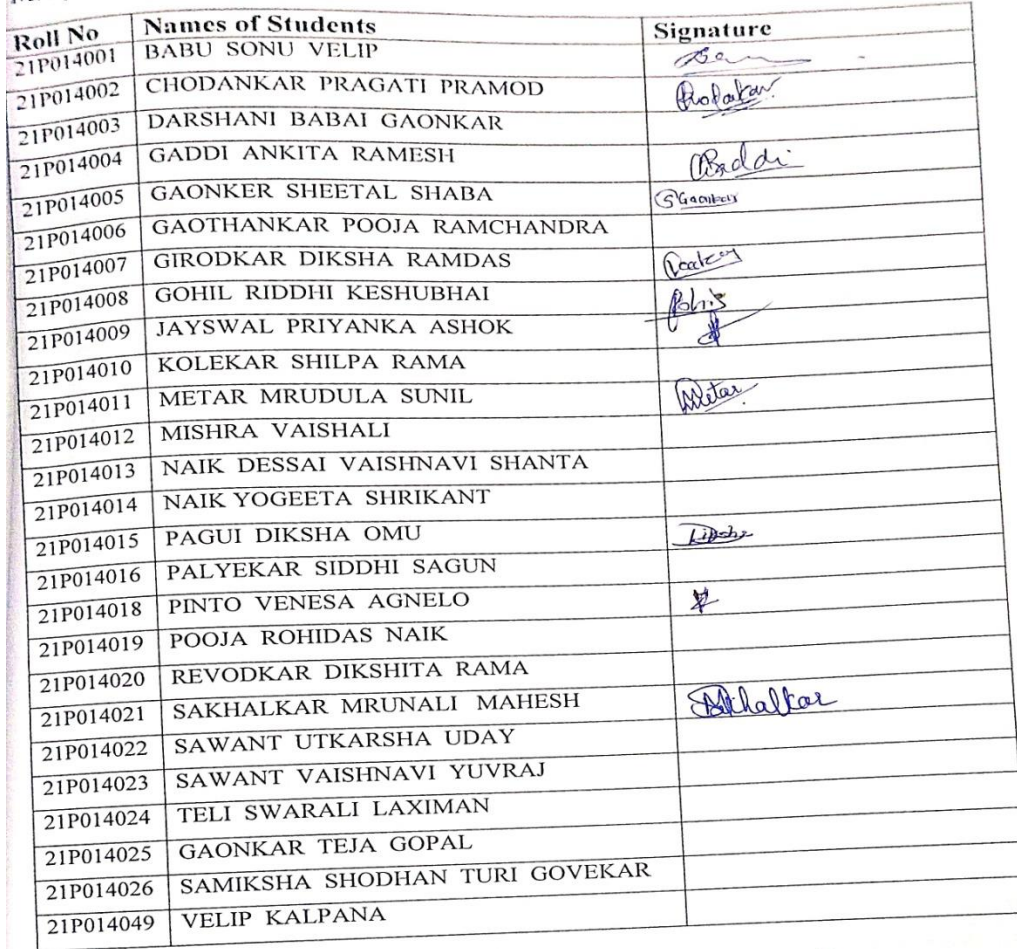 Roll No Names of Students Signature
21P014001 BABU SONU VELIP
21P014002 CHODANKAR PRAGATI PRAMOD
21P014003 DARSHANI BABAI GAONKAR
21P014004 GADDI ANKITA RAMESH
21P014005 GAONKER SHEETAL SHABA SGaonker
21P014006 GAOTHANKAR POOJA RAMCHANDRA
21P014007 GIRODKAR DIKSHA RAMDAS
21P014008 GOHIL RIDDHI KESHUBHAI
21P014009 JAYSWAL PRIYANKA ASHOK
21P014010 KOLEKAR SHILPA RAMA
21P014011 METAR MRUDULA SUNIL Metar
21P014012 MISHRA VAISHALI
21P014013 NAIK DESSAI VAISHNAVI SHANTA
21P014014 NAIK YOGEETA SHRIKANT
21P014015 PAGUI DIKSHA OMU
21P014016 PALYEKAR SIDDHI SAGUN
21P014018 PINTO VENESA AGNELO
21P014019 POOJA ROHIDAS NAIK
21P014020 REVODKAR DIKSHITA RAMA
21P014021 SAKHALKAR MRUNALI MAHESH Sakhalkar
21P014022 SAWANT UTKARSHA UDAY
21P014023 SAWANT VAISHNAVI YUVRAJ
21P014024 TELI SWARALI LAXIMAN
21P014025 GAONKAR TEJA GOPAL
21P014026 SAMIKSHA SHODHAN TURI GOVEKAR
21P014049 VELIP KALPANA